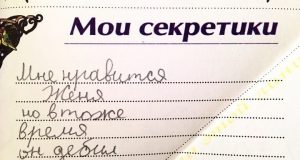 Мои секретики
Мне нравится
Женя
но втоже
время
он дебил